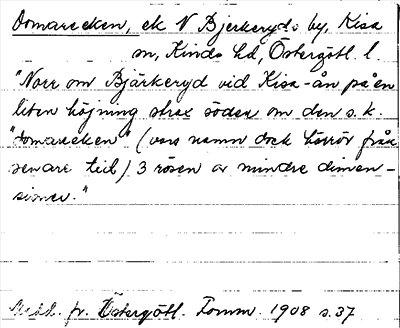 Domareeken, ek N Bjerkeryds by, Kisa
sn, Kinds hd, Östergötl. l.
"Norr om Bjärkeryd vid Kisa-ån på en
liten höjning strax söder om den s.k.
"domareeken" (vars namn dock härrör från
senare tid) 3 rösen av mindre dimen-
sioner."
Medd. fr. Östergötl. Fornm. 1908 s. 37